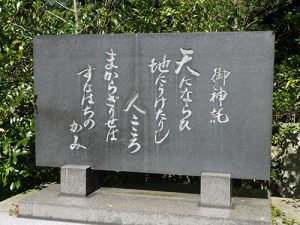 御神託
天にならひ
地にうけたりし
人こころ
まからざりせは
すなはちの
かみ